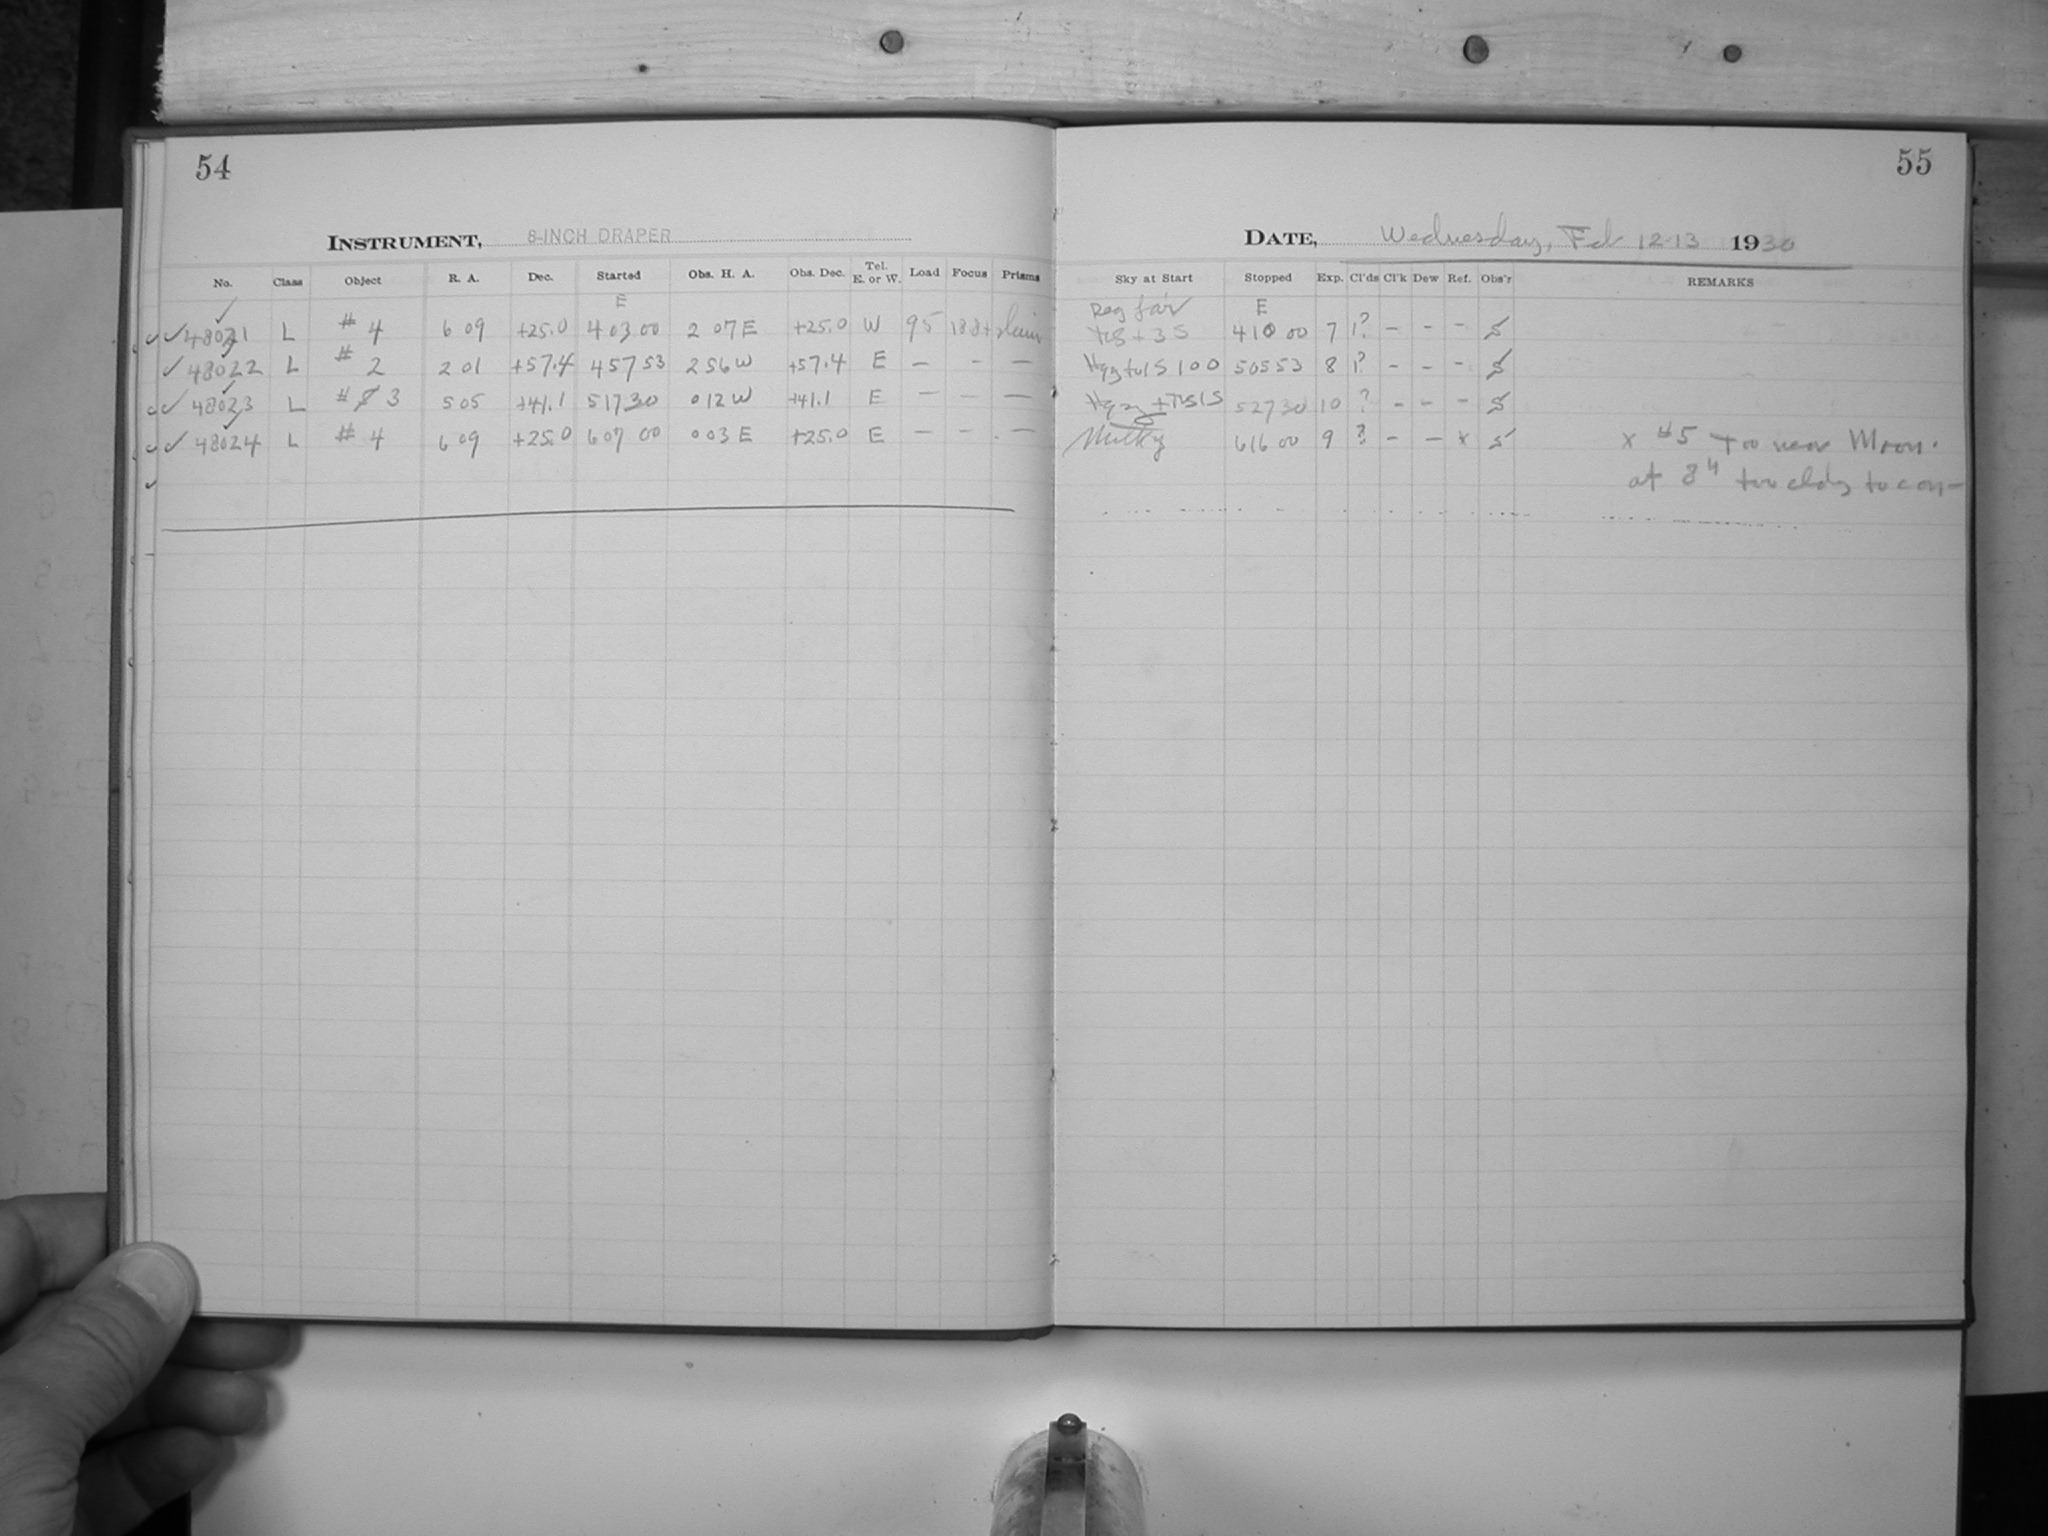 54
INSTRUMENT, 8-INCH DRAPER
No. Class Object R. A. Dec. Started Obs. H. A. Obs. Dec. Tel. E. or W. Load Focus Prisms
E
48021 L # 4 6 09 +25.0 4 03 00 2 07 E +25.0 W 95 188+ plain
48022 L # 2 2 01 +57.4 4 57 53 2 56 W +57.4 E — - —
48023 L # 3 5 05 +41.1 5 17 30 0 12 W +41.1 E — - —
48024 L # 4 6 09 +25.0 6 07 00 0 03 E +25.0 E — - —
55
DATE, Wednesday, Feb 12-13 1930
Sky at Start Stopped Exp. Cl'ds Cl'k Dew Ref. Obs'r REMARKS
Reg fair E
+35 4 10 00 7 1? - - - S
5 100 5 05 53 8 1? - - - S
5 27 30 10 ? - - - S
Milky 6 16 00 9 ? - - x S x #5 Too near Moon.
at 8 too cldy to con-